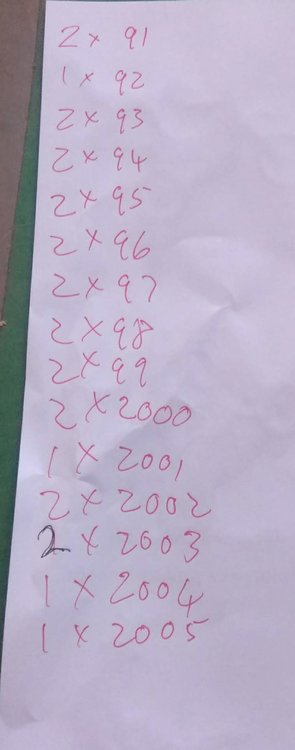 2 x 91
1 x 92
2 x 93
2 x 94
2 x 95
2 x 96
2 x 97
2 x 98
2 x 99
2 x 2000
1 x 2001
2 x 2002
2 x 2003
1 x 2004
1 x 2005